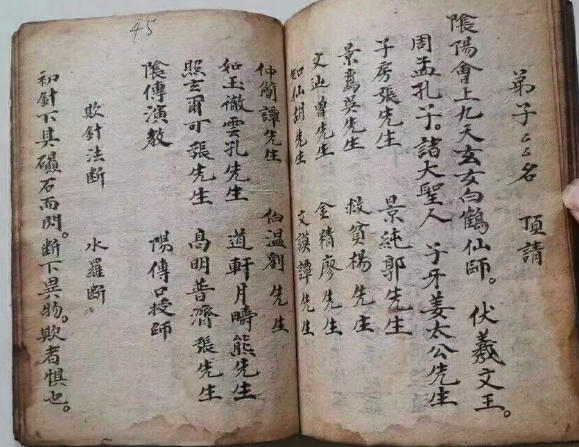 弟子厶厶名 頂請
陰陽會上九天玄女白鶴仙師。伏羲文王。
周孟孔子。諸大聖人 子牙姜太公先生
子房張先生 景純郭先生
景鸞吳先生 救貧楊先生
文辿曾先生 金精廖先生
如仙胡先生 文謨譚先生
仲簡譚先生 伯温劉先生
如玉徹雲孔先生 道軒月疇熊先生
照玄爾可張先生 高明普濟張先生
陰傳演教 陽傳口授師
欺針法斷 水羅斷
初針下具礦石而閃。斷下異物。欺者惧也。
45